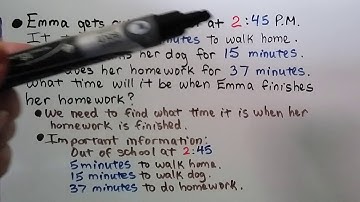 • Emma gets at 2:45 P.M.
It minutes to walk home.
her dog for 15 minutes.
her homework for 37 minutes.
What time will it be when Emma finishes
her homework?
• We need to find what time it is when her
homework is finished.
• Important information:
Out of school at 2:45
5 minutes to walk home.
15 minutes to walk dog.
37 minutes to do homework.